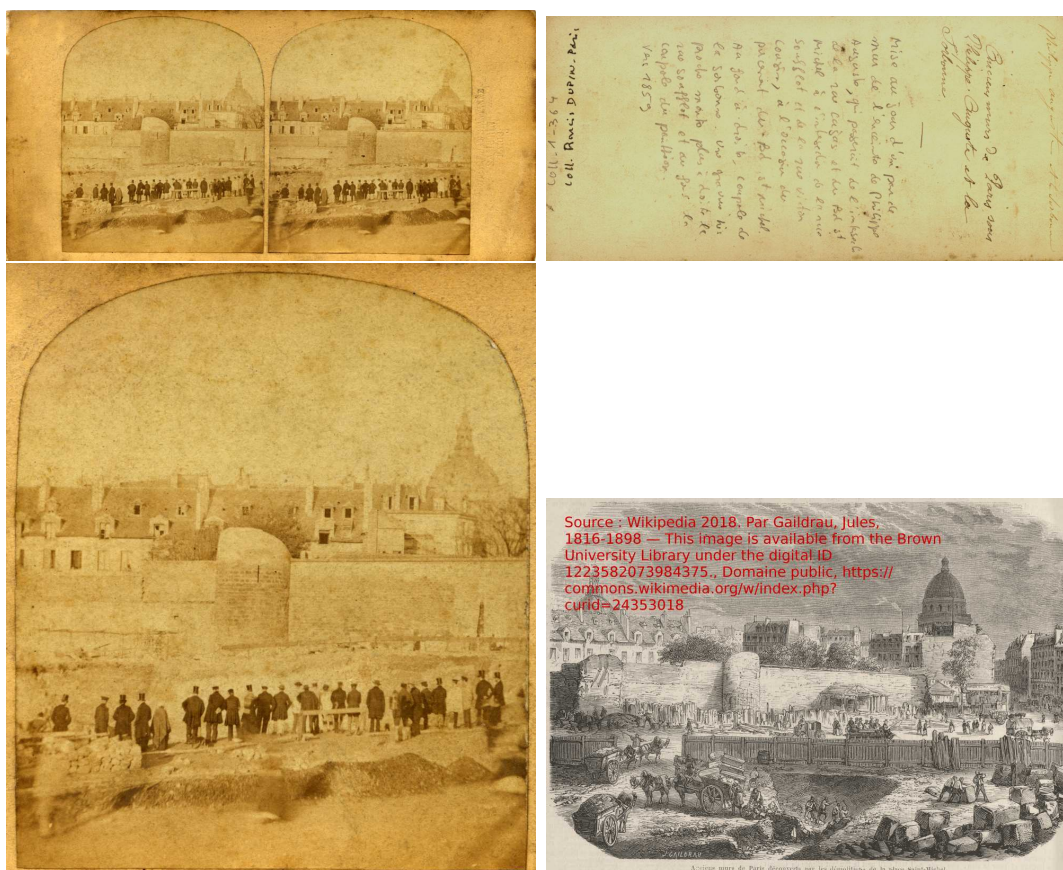 Coll. Francis DUPIN. Paris
Ancien murs de Paris sous
Philippe-Auguste et la
Sorbonne
Mise au jour d'une partie du
mur de l'enceinte de Philippe
Auguste, qui passait de l'
de la rue Cujas et du Bd St
Michel à
Soufflot et de la rue Victor
Cousin, à l'occasion du
percement du Bd St Michel.
Au fond à droite coupole de
la Sorbonne. Une gravure
porte montre plus à droite la
rue Soufflot et au
coupole du panthéon.
vers 1859
Source : Wikipedia 2018. Par Gaildrau, Jules,
1816-1898 — This image is available from the Brown
University Library under the digital ID
1223582073984375., Domaine public, https://
commons.wikimedia.org/w/index.php?
curid=24353018
J. GAILDRAU
Anciens murs de Paris découverts par les démolitions de la place Saint-Michel.